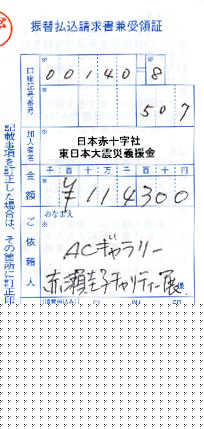 振替払込請求書兼受領証
口座記号番号
00140 8
507
加入者名
日本赤十字社
東日本大震災義援金
金額
千 百 十 万 千 百 十 円
¥114300
ご依頼人
おなまえ
ACギャラリー
赤瀬圭子チャリティー展
様
記載事項を訂正した場合は、その箇所に訂正印